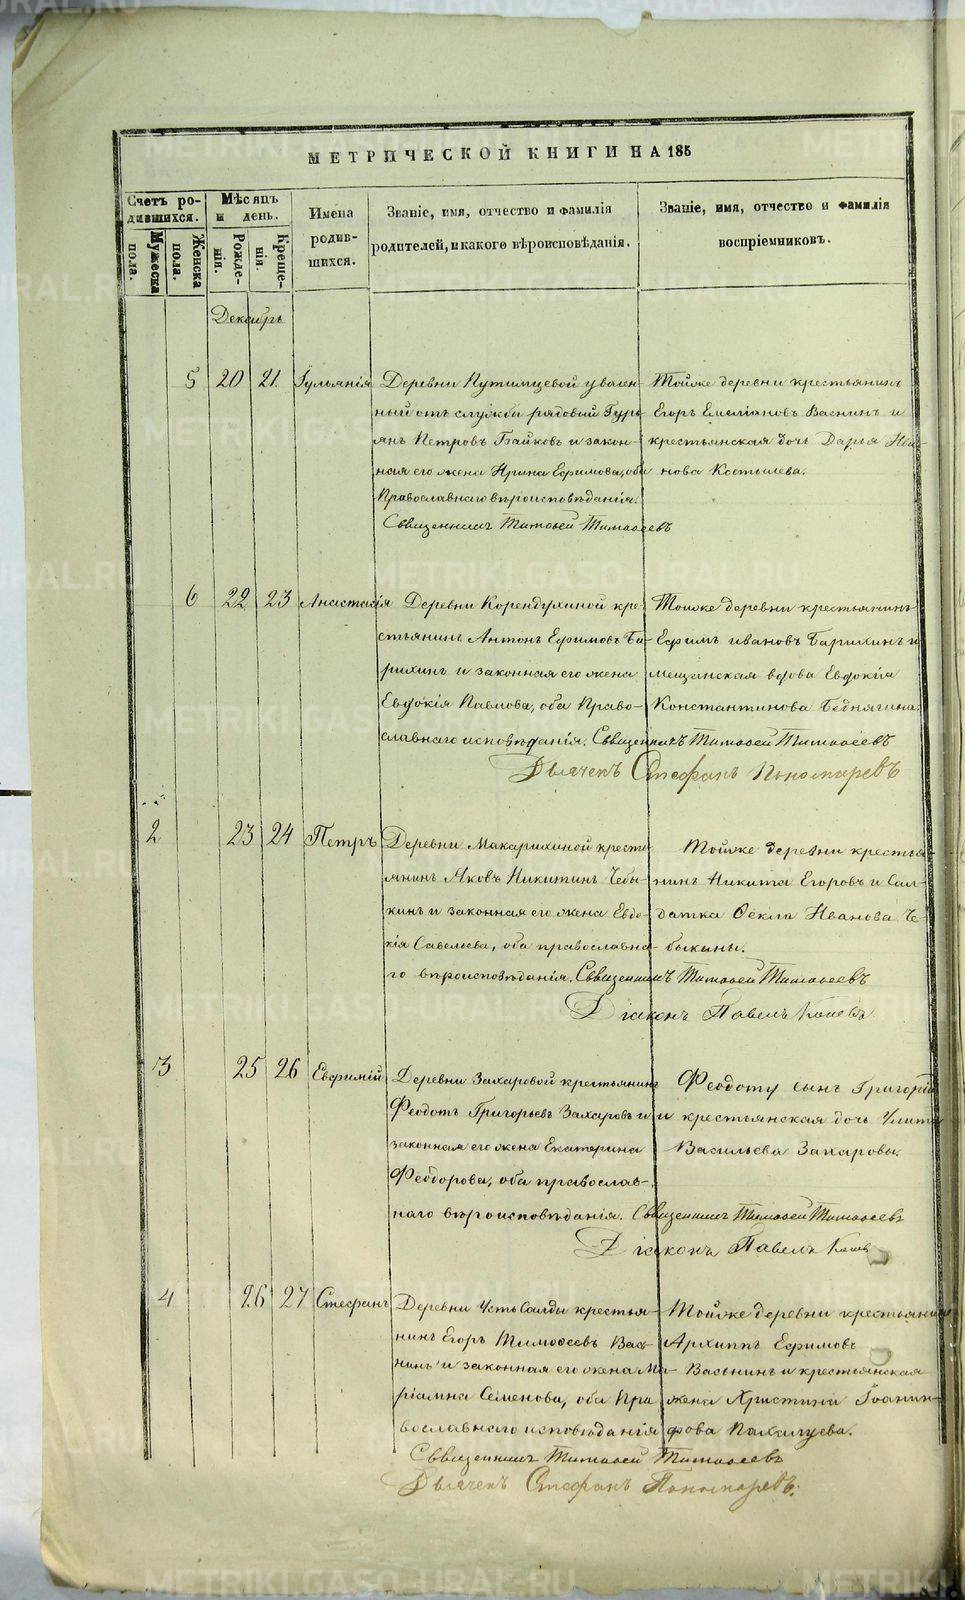 МЕТРИЧЕСКОЙ КНИГИ НА 185
Счетъ ро-
дившихся.
Мужеска
пола.
Женска
пола.
Мѣсяцъ
и день.
Рожде-
нія.
Креще-
нія.
Имена
родив-
шихся.
Званіе, имя, отчество и фамилія
родителей, и какого вѣроисповѣданія.
Званіе, имя, отчество и фамилія
воспріемниковъ.
Декабрь
5 20 21. Іульянія
Деревни Путимцевой уволен-
ный отъ службы рядовый Гурь-
янъ Петровъ Байковъ и закон-
ная его жена Ирина Ефимова, оба
Православнаго вѣроисповѣданія.
Священникъ Тимоѳей Тимоѳеевъ
Тойже деревни крестьянинъ
Егоръ Емеліановъ Васнинъ и
крестьянская дочь Дарья Ива-
нова Костылева.
6 22 23 Анастасія
Деревни Корендухиной кре-
стьянинъ Антонъ Ефимовъ Ба-
рихинъ и законная его жена
Евдокія Павлова, оба Право-
славнаго исповѣданія. Священникъ Тимоѳей Тимоѳеевъ
Дьячекъ Стефанъ Пономаревъ
Тойже деревни крестьянинъ
Ефимъ Ивановъ Барихинъ и
мещанская вдова Евдокія
Константинова Беднягина.
2 23 24 Петръ
Деревни Макарихиной кресть-
янинъ Яковъ Никитинъ Чебы-
кинъ и законная его жена Евдо-
кія Савельева, оба православна-
го вѣроисповѣданія. Священникъ Тимоѳей Тимоѳеевъ
Діаконъ Павелъ
Тойже деревни крестья-
нинъ Никита Егоровъ и Сол-
датка Ѳекла Иванова Че-
быкины.
3 25 26 Евфимій
Деревни Захаровой крестьянинъ
Феодотъ Григорьевъ Захаровъ и
законная его жена Екатерина
Феодорова, оба православ-
наго вѣроисповѣданія. Священникъ Тимоѳей Тимоѳеевъ
Діаконъ Павелъ
Феодоту сынъ Григорій
и крестьянская дочь Улита
Васильева Захаровы.
4 26 27 Стефанъ
Деревни Усть Салды крестья-
нинъ Егоръ Тимоѳеевъ Вась-
нинъ и законная его жена Ма-
ріамна Семенова, оба Пра-
вославнаго исповѣданія
Священникъ Тимоѳей Тимоѳеевъ
Дьячекъ Стефанъ Пономаревъ.
Тойже деревни крестьянинъ
Архиппъ Ефимовъ
Васьнинъ и крестьянская
жена Христина
Пахалуева.
METRIKI.GASO-URAL.RU